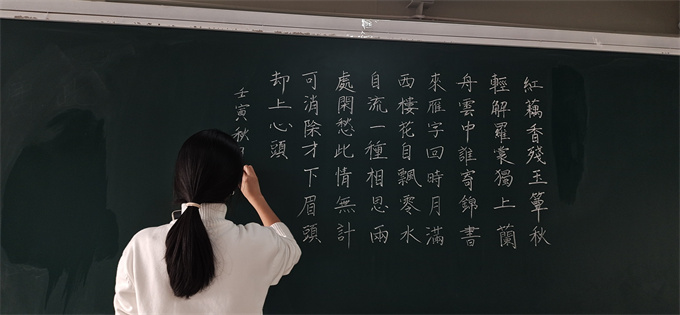 紅藕香殘玉簟秋
輕解羅裳獨上蘭
舟雲中誰寄錦書
來雁字回時月滿
西樓花自飄零水
自流一種相思兩
處閑愁此情無計
可消除才下眉頭
却上心頭
壬寅秋